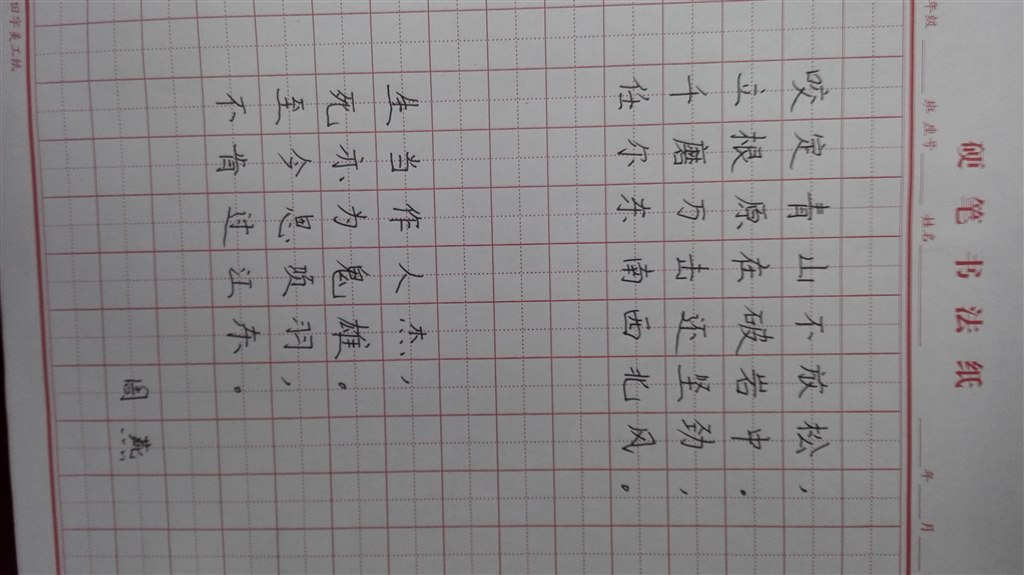 硬笔书法纸
年级 班 座号 姓名 年 月
咬定青山不放松，
立根原在破岩中。
千磨万击还坚劲，
任尔东南西北风。
生当作人杰，
死亦为鬼雄。
至今思项羽，
不肯过江东。
周燕
田字美工纸